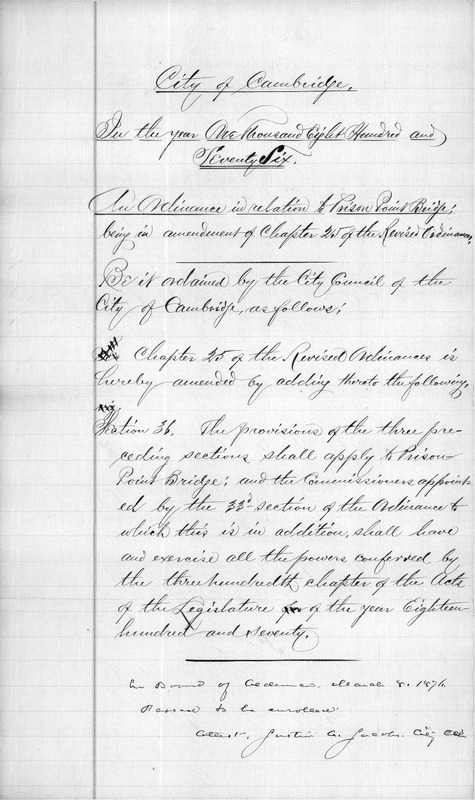 City of Cambridge.
In the year One Thousand Eight Hundred and
Seventy Six.
An Ordinance in relation to Prison Point Bridge;
being in amendment of Chapter 25 of the Revised Ordinances,
Be it ordained by the City Council of the
City of Cambridge, as follows;
Chapter 25 of the Revised Ordinances is
hereby amended by adding thereto the following,
viz;
Section 36. The provisions of the three pre-
ceding sections shall apply to Prison
Point Bridge; and the Commissioners appoint-
ed by the 33d section of the Ordinance to
which this is in addition, shall have
and exercise all the powers conferred by
the three hundredth chapter of the Acts
of the Legislature of the year Eighteen
hundred and seventy.
In Board of Aldermen. March 8. 1876.
Passed to be enrolled.
Attest. Justin A. Jacobs. City Clerk